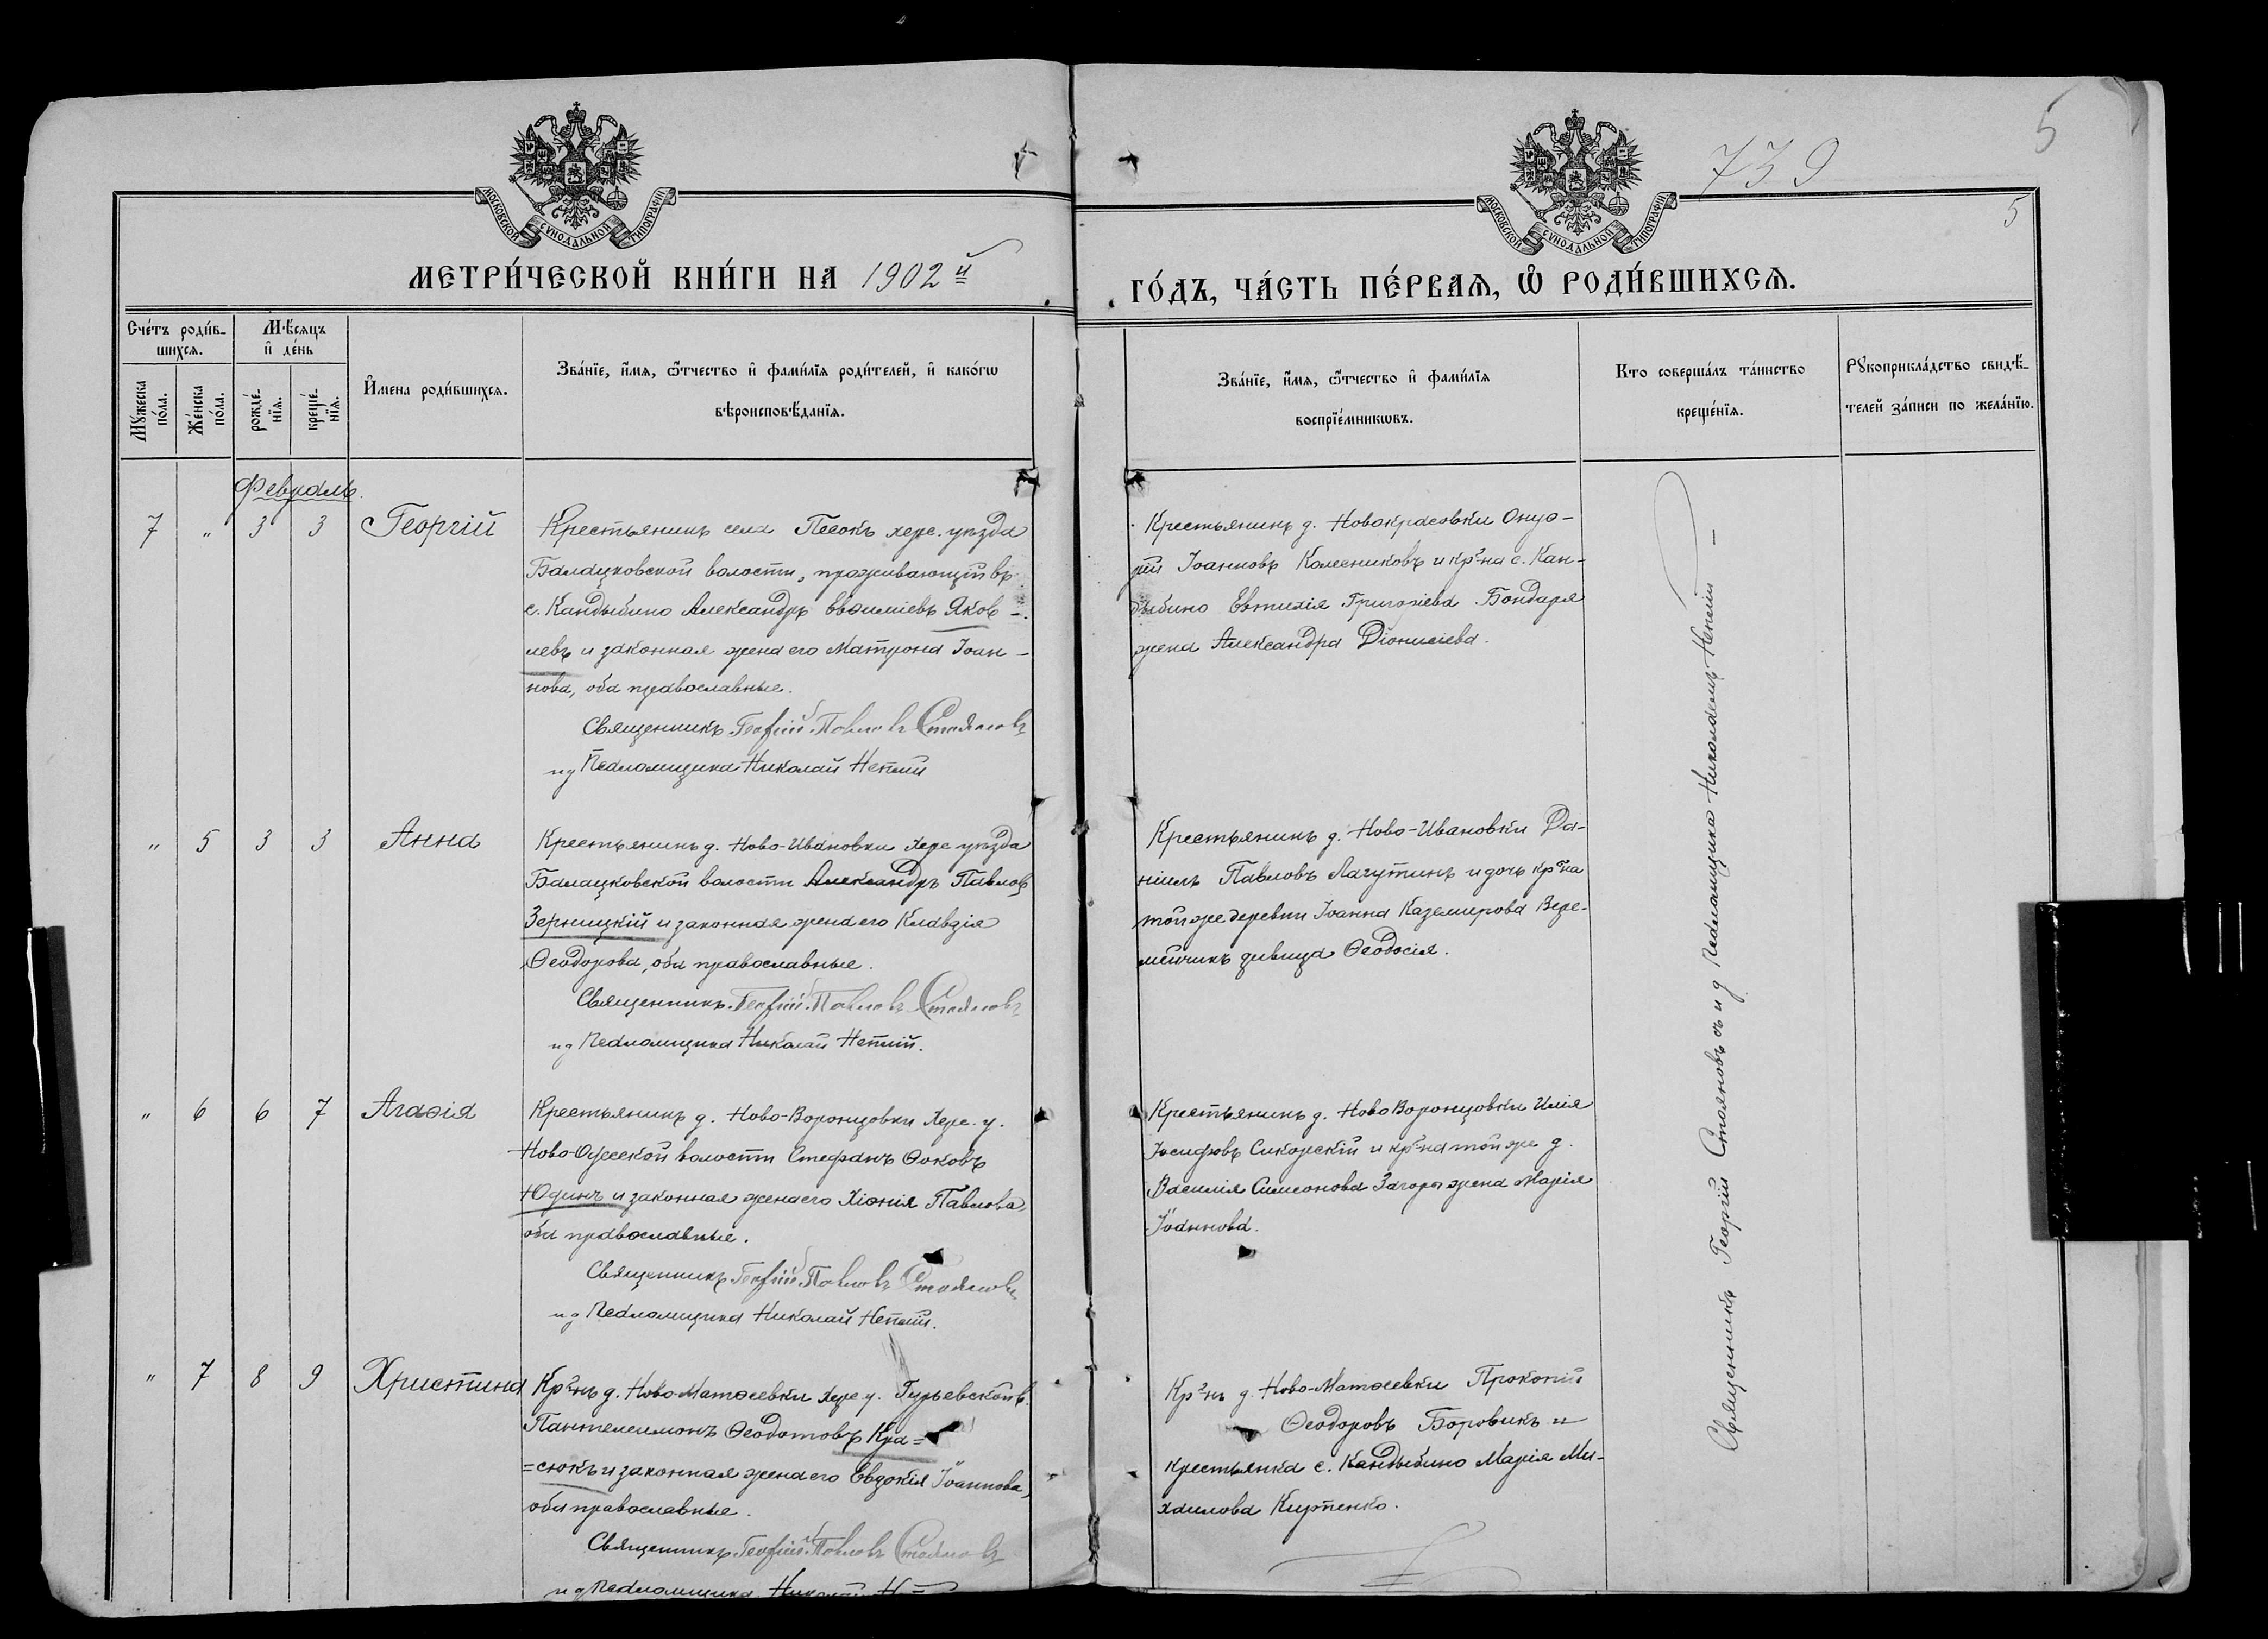 739
5
5
МОСКОВСКОЙ СУНОДАЛЬНОЙ ТИПОГРАФІИ
МОСКОВСКОЙ СУНОДАЛЬНОЙ ТИПОГРАФІИ
МЕТРИ́ЧЕСКОЙ КНИ́ГИ НА 1902й
ГО́ДЪ, ЧА́СТЬ ПЕ́РВАѦ, Ѡ҆ РОДИ́ВШИХСѦ.
Сче́тъ роди́в-
шихсѧ.
Мꙋ́жеска по́ла.
Же́нска по́ла.
Мѣ́сяцъ
и҆ де́нь
рожде́-
нїѧ.
креще́-
нїѧ.
И҆мена роди́вшихсѧ.
Зва́нїе, и҆́мѧ, ѻ҆́тчество и҆ фами́лїѧ роди́телей, и҆ како́гѡ
вѣроисповѣ́данїѧ.
Зва́нїе, и҆́мѧ, ѻ҆́тчество и҆ фами́лїѧ
воспрїе́мникѡвъ.
Кто соверша́лъ та́инство
креще́нїѧ.
Рꙋкоприкла́дство свидѣ́-
телей за́писи по жела́нїю.
Февраль.
7 " 3 3 Георгій
Крестьянинъ села Песокъ херс. уѣзда
Балацковской волости, проживающій въ
с. Кандыбино Александръ Евѳиміевъ Яков-
левъ и законная жена его Матрона Іоан-
нова, оба православные.
Священникъ Георгій Павловъ Стояновъ
ид Псаломщика Николай
Крестьянинъ д. Новокрасовки Онуф-
рій Іоанновъ Колесниковъ и кр-на с. Кан-
дыбино Евтихія Григоріева Бондаря
жена Александра Діонисіева.
" 5 3 3 Анна
Крестьянинъ д. Ново-Ивановки Херс уѣзда
Балацковской волости Александръ Павловъ
Зерницкій и законная жена его Клавдія
Ѳеодорова, оба православные.
Священникъ Георгій Павловъ Стояновъ
ид Псаломщика Николай
Крестьянинъ д. Ново-Ивановки Да-
ніилъ Павловъ Лагутинъ и дочь кр-на
той же деревни Іоанна Каземирова Вере-
мейчикъ дѣвица Ѳеодосія.
" 6 6 7 Агаѳія
Крестьянинъ д. Ново-Воронцовки Херс. у.
Ново-Одесской волости Стефанъ Ѳоковъ
Юдинъ и законная жена его Хіонія Павлова,
оба православные.
Священникъ Георгій Павловъ Стояновъ
ид Псаломщика Николай
Крестьянинъ д. Ново Воронцовки Илія
Іосифовъ Сикорскій и кр-на той же д.
Василія Симеонова Загоры жена Марія
Іоаннова.
" 7 8 9 Христина
Кр-нъ д. Ново-Матѳеевки Херс у. Гурьевской в.
Пантелеимонъ Ѳеодотовъ Кра=
=сюкъ и законная жена его Евдокія Іоаннова,
оба православные.
Священникъ Георгій Павловъ Стояновъ
ид Псаломщика Николай
Кр-нъ д. Ново-Матѳеевки Прокопій
Ѳеодоровъ Боровикъ и
крестьянка с. Кандыбино Марія Ми-
хаилова Кирпенко.
Священникъ Георгій Стояновъ съ и д Псаломщика Николаемъ